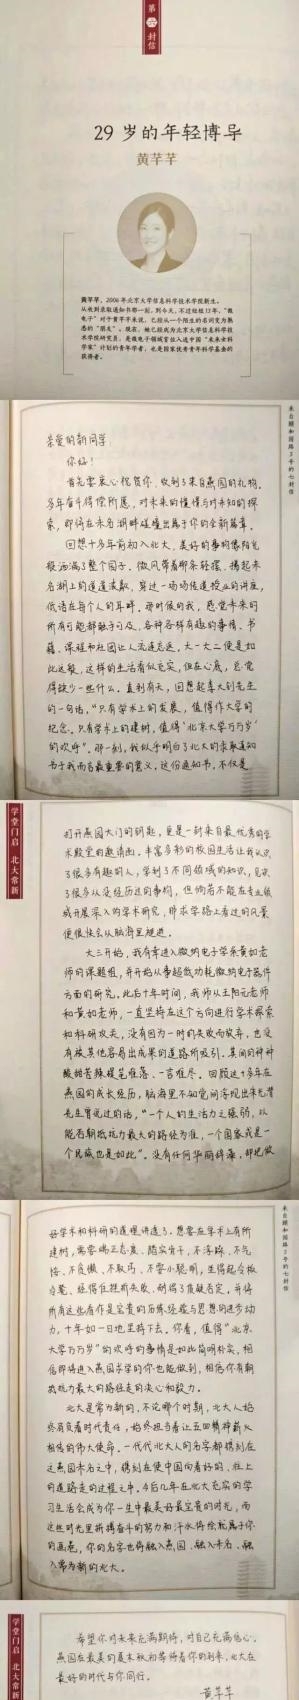 第六封信
29 岁的年轻博导
黄芊芊
黄芊芊，2006年北京大学信息科学技术学院新生。
从收到录取通知书那一刻，到今天，不过短短13年，“微
电子”对于黄芊芊来说，已经从一个陌生的名词变为熟
悉的“朋友”。现在，她已经成为北京大学信息科学技
术学院研究员，是微电子领域首位入选中国“未来女科
学家”计划的青年学者，也是国家优秀青年科学基金的
获得者。
来自颐和园路5号的七封信
亲爱的新同学：
你好！
首先衷心祝贺你，收到了来自燕园的礼物。
多年奋斗得偿所愿，对未来的憧憬与对未知的探
索，即将在未名湖畔碰撞出属于你的全新篇章。
回想十多年前初入北大，美好的事物像阳光
般洒满了整个园子。微风带着柳条轻摆，携起未
名湖上的道道波纹，穿过一场场传道授业的讲座，
低语在每个人的耳畔。那时候的我，感觉未来的
所有可能都触手可及，各种各样有趣的事情、书
籍、课程和社团让人流连忘返。大一大二便是如
此度过，这样的生活看似充实，但在心底，总觉
得缺少一些什么。直到有天，回想起李大钊先生
的一句话，“只有学术上的发展，值得作大学的
纪念。只有学术上的建树，值得‘北京大学万万岁’
的欢呼”。那一刻，我似乎明白了北大的录取通知
书于我而言最重要的意义。这份通知书，不仅是
学堂门启 北大常新
打开燕园大门的钥匙，更是一封来自最优秀的学
术殿堂的邀请函。丰富多彩的校园生活让我认识
了很多有趣的人，学到了不同领域的知识，见识
了很多从没经历过的事物，但倘若不能在专业领
域开展深入的学术研究，那求学路上看过的风景
便很快会从脑海里褪进。
大三开始，我有幸进入微纳电子学系黄如老
师的课题组，并开始从事超低功耗微纳电子器件
方面的研究。此后十年时间，我师从王阳元老师
和黄如老师，一直坚持在这个方向进行学术探索
和科研攻关，没有因为一时的失败而放弃，也没
有被其他容易出成果的道路所吸引。其间的种种
酸甜苦辣幔笔难落、一言难尽。回顾这十多年在
燕园的成长经历，脑海里不知觉间浮现出朱光潜
先生曾说过的话，“一个人的生活力之强弱，以
能否朝抵抗力最大的路径为准，一个国家或是一
个民族也是如此”。没有任何华丽辞藻，却把做
来自颐和园路5号的七封信
好学术和科研的道理讲透了。想要在学术上有所
建树，需要端正态度、踏实肯干，不浮躁、不气
馁、不畏惧、不取巧、不耍小聪明，坐得起冷板
凳、经得住挫折失败、耐得了质疑否定，并将
所有这些看作是宝贵的历练经验与思想的进步动
力，十年如一日地坚持下去。你看，值得“北京
大学万万岁”的欢呼的事情是如此简明朴实，相
信即将进入燕园求学的你也能做到，相信你有朝
抵抗力最大的路径走的决心和毅力。
北大是常为新的，不论哪个时期，北大人始
终肩负着时代责任，始终担当着让五四精神薪火
相传的伟大使命。一代代北大人的名字都镌刻在
这燕园未名之中，镌刻在使中国向着好的，往上
的道路走的过程之中。今后几年在北大充实的学
习生活会成为你一生中最美好最宝贵的时光，而
这些时光里拼搏奋斗的努力和汗水将绘就属于你
的画卷，你的名字也将融入燕园、融入未名、融
入常为新的北大。
学堂门启 北大常新
希望你对未来充满期待，对自己充满信心。
燕园在最美的夏末秋初等待着你的到来，北大在
最好的时代与你同行。
黄芊芊